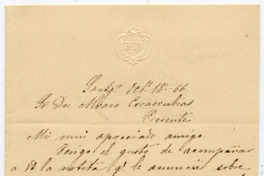 Santgo. Oct. 18-66.
Sr. Don Alvaro Covarrubias
Presente
Mi mui apreciado amigo
Tengo el gusto de acompañar
a Ud la notita qe. le anuncié sobre